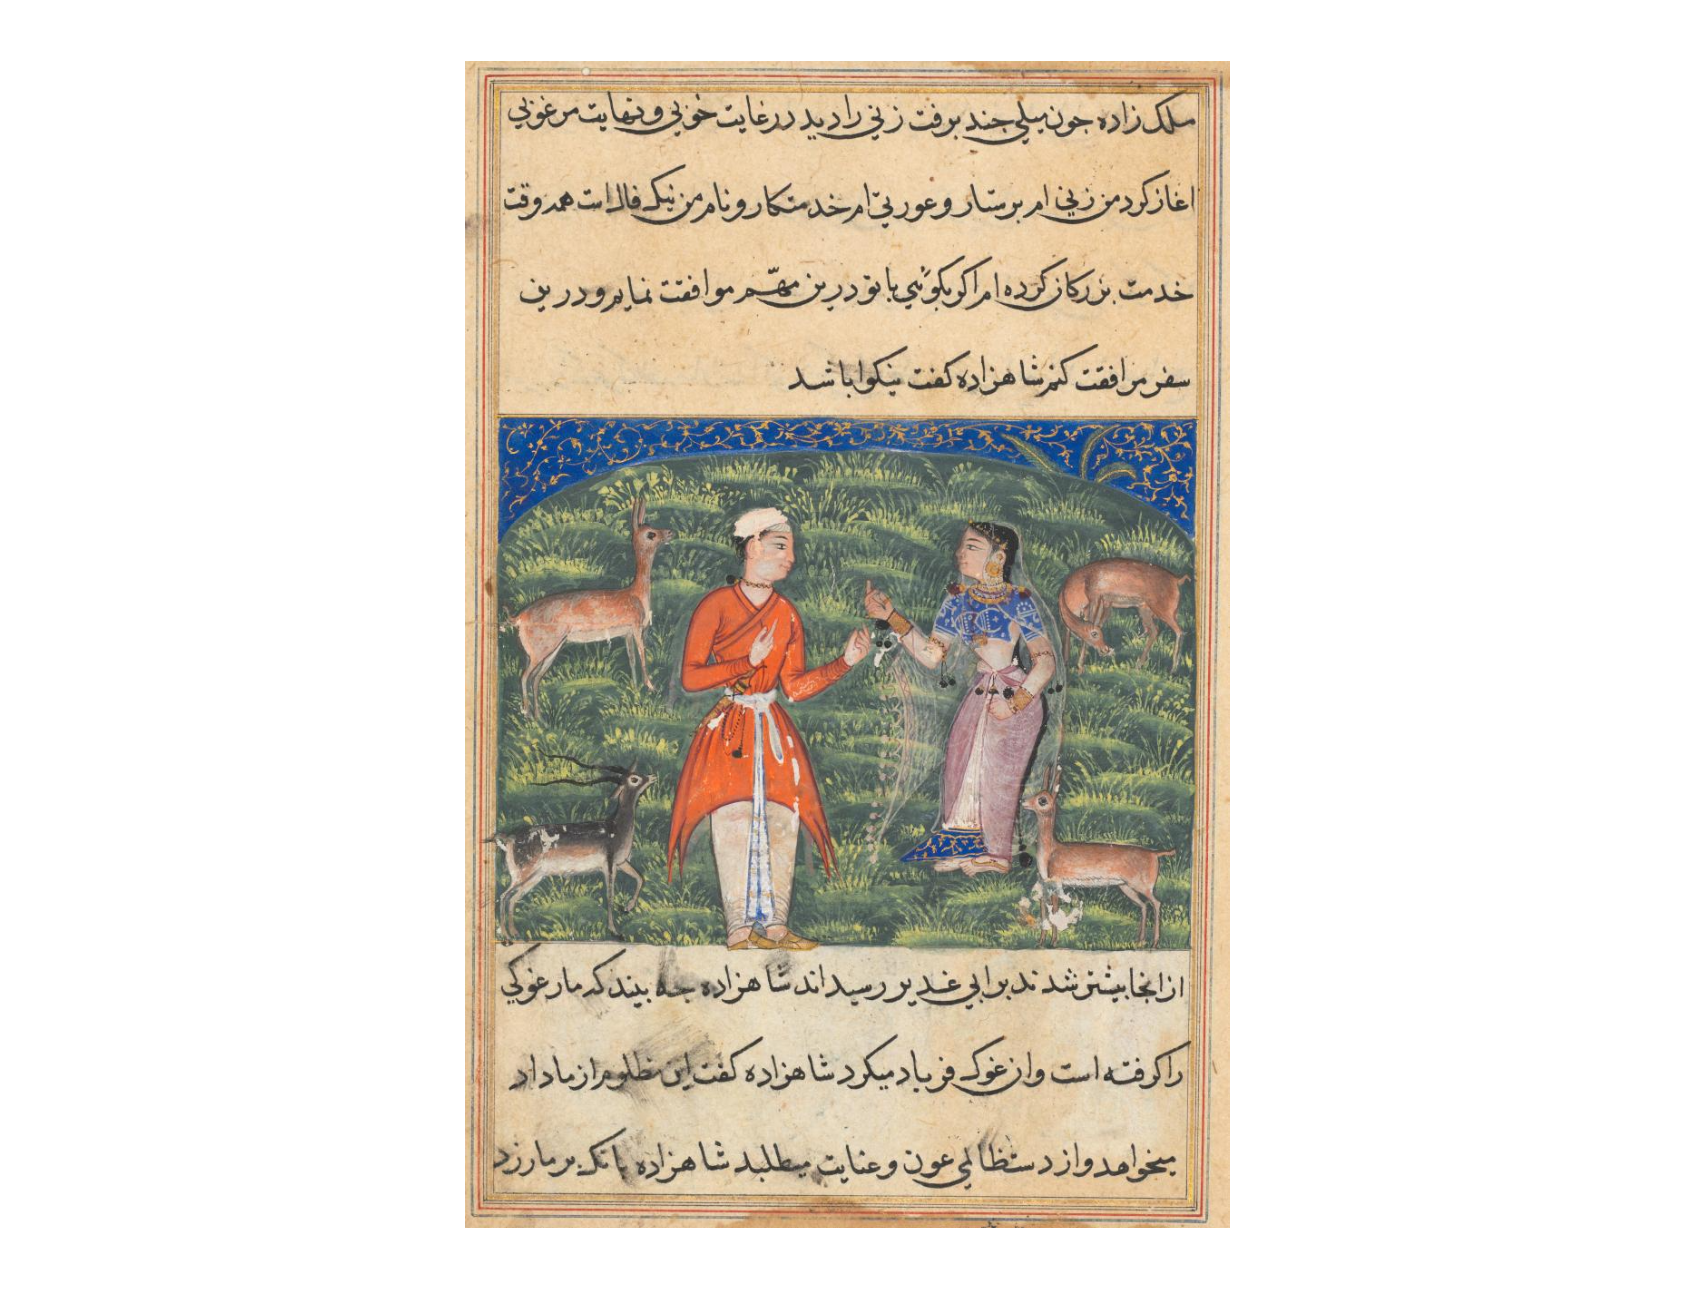 ملک زاده جون میلی جند برفت زنی را دید در غایت خوبی و نهایت مرغوبی
اغاز کرد من زنی ام برستار و عورتی ام خدمتکار و نام من نیک فال است همه وقت
خدمت بزرکان کرده ام اکر بکوئی با تو درین مهّم موافقت نمایم و درین
سفر مرافقت کنم شاهزاده کفت نیکو باشد
از انجا بیشتر شدند بر ابی غدیر رسیداند شاهزاده جه بیند که مار غوکی
را کرفته است و ان غوک فریاد میکرد شاهزاده کفت این مظلوم از ما داد
میخواهد و از دست ظالمی عون و عنایت میطلبد شاهزاده بانک بر مار زد